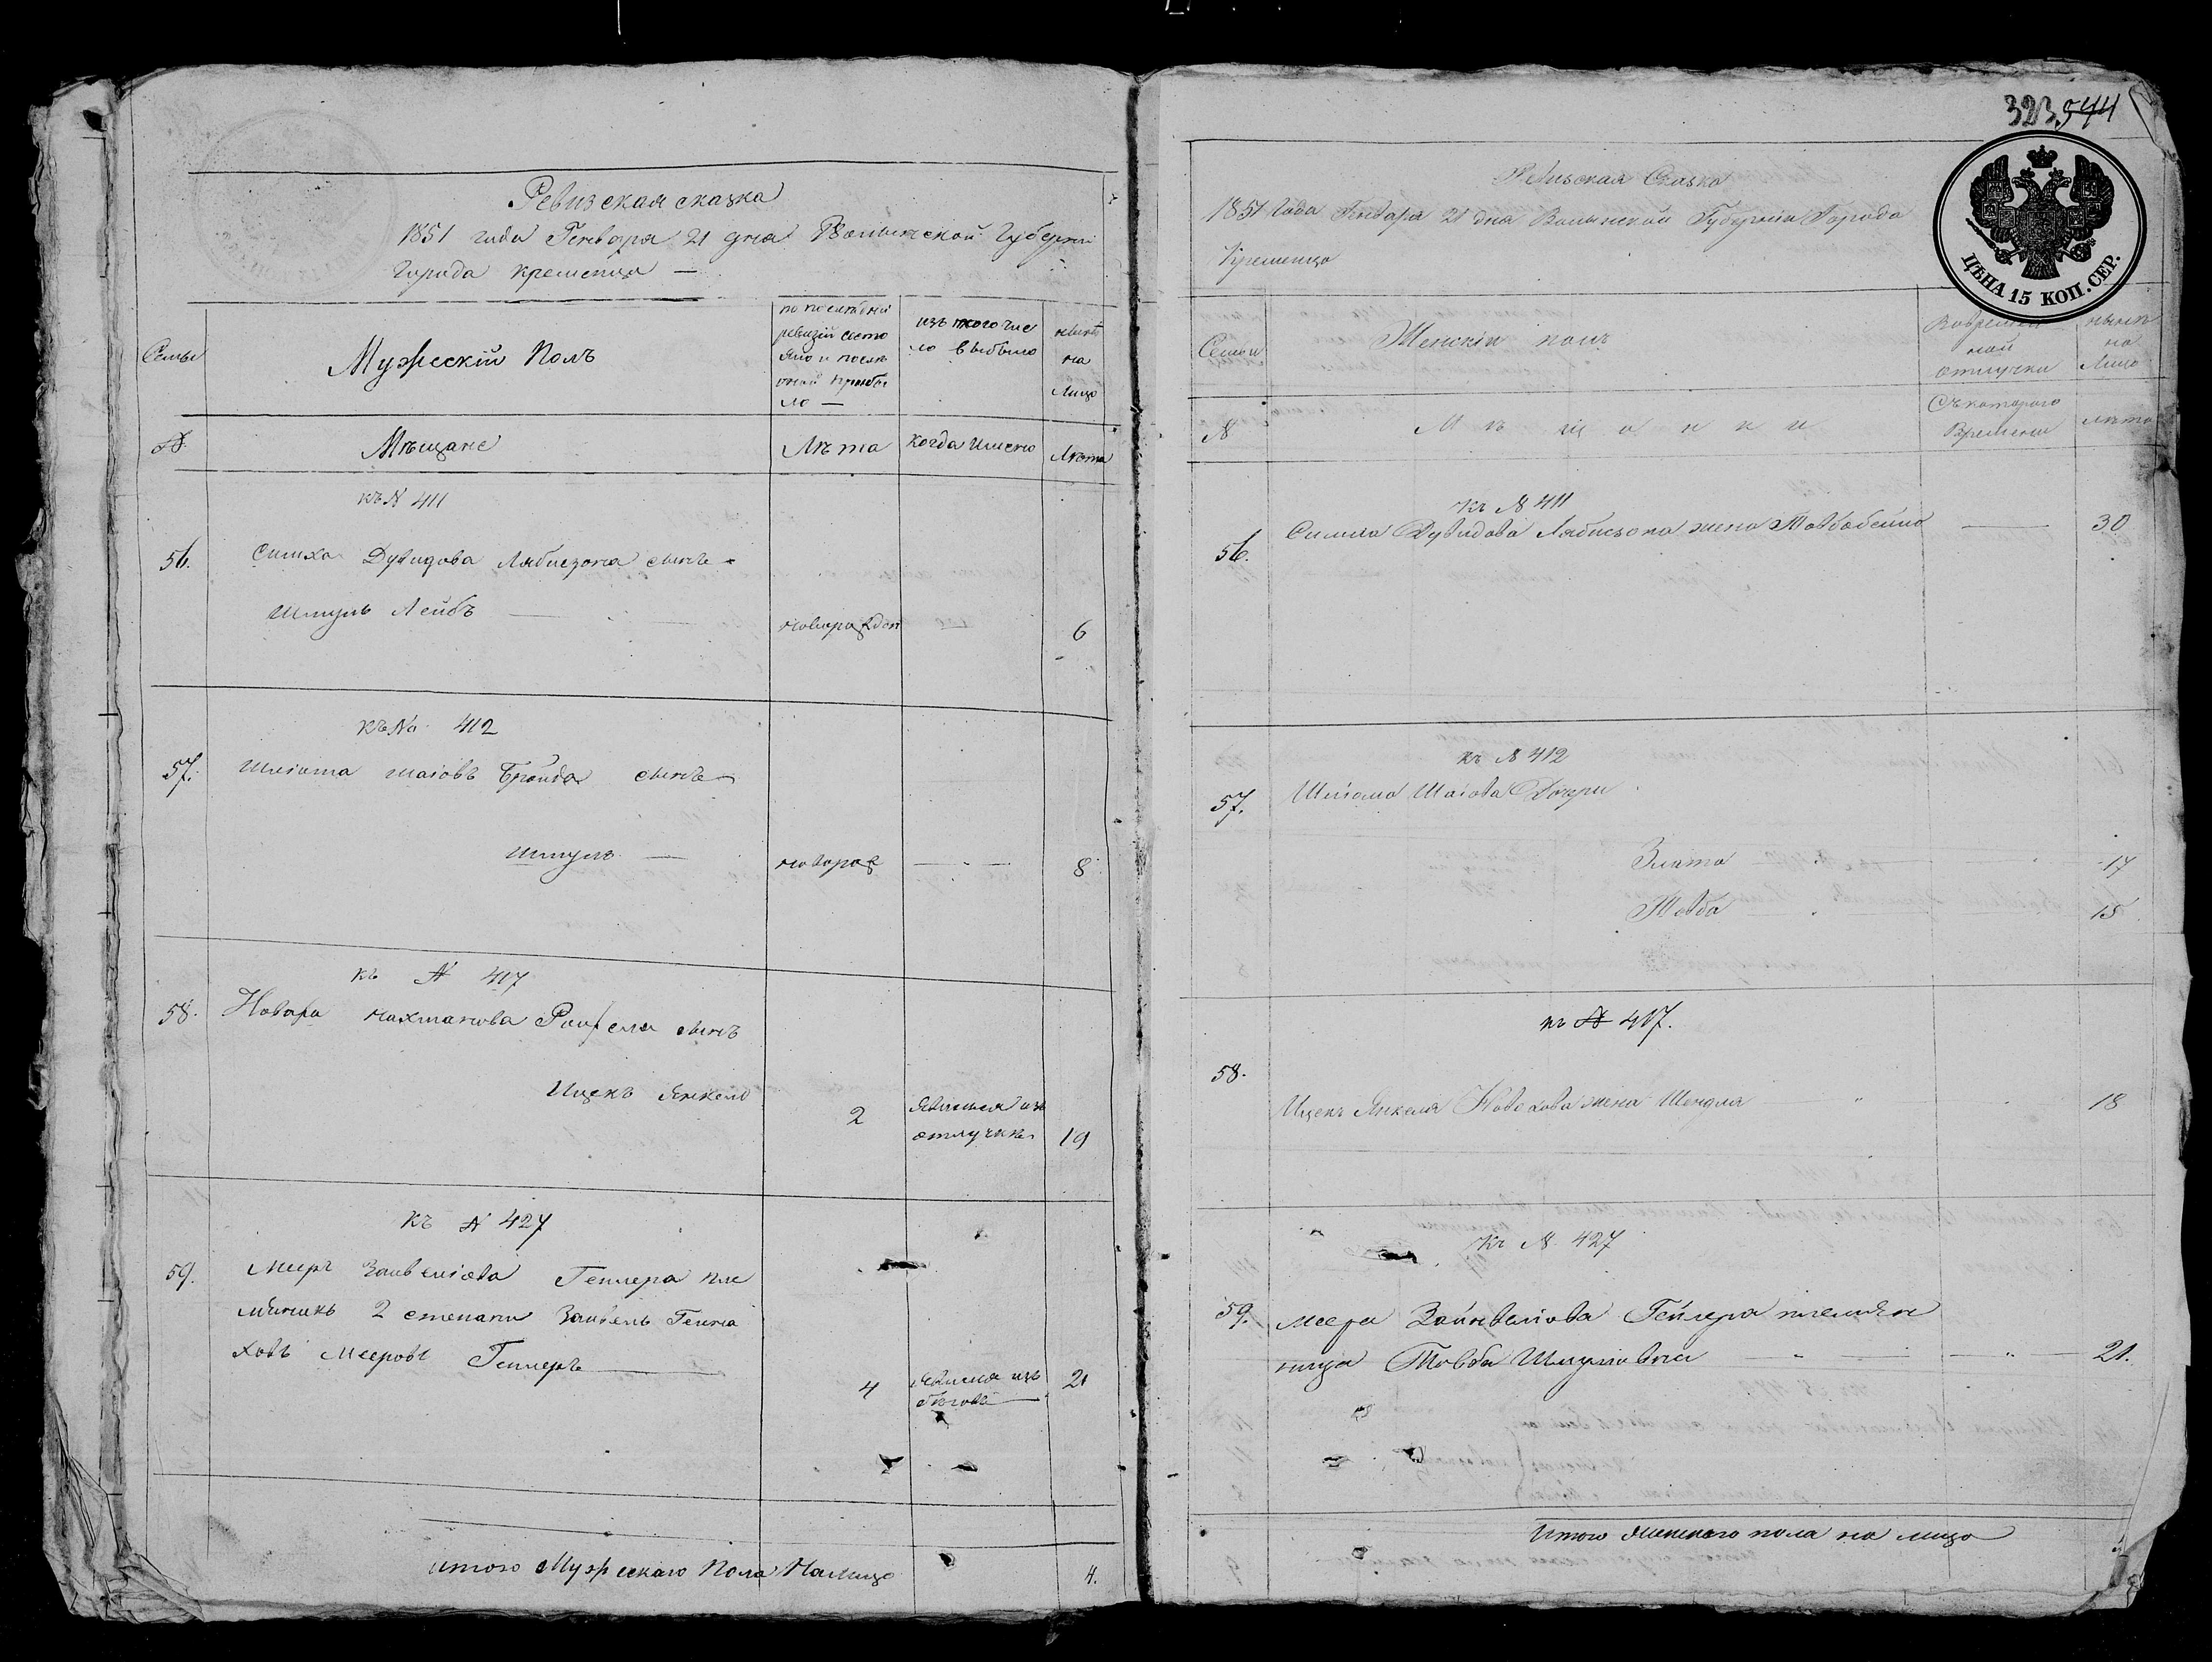 Ревизская сказка
1851 года Генваря 21 дня Волынской Губерніи
Города Кременца —
Семьи
Мужескій Полъ
по последней
ревизіи состо
яло и после
оной прибы
ло —
изъ того чис
ло выбыло
ныне
на
Лицо
№
Мѣщане
Лѣта
когда именно
Лѣта
къ № 411
56.
Симха Дувидова Лябисзона сынъ
Шмуль Лейбъ
новорожден
6
къ № 412
57.
Шліома Шаіовъ Бройда сынъ
Шмуль —
новорож
8
къ № 417
58.
Новаха Нахманова сынъ
Ицекъ Янкель
2
явился изъ
отлучки
19
къ № 427
59.
Мееръ Зайвеліова Геллера пле
мянникъ 2 степени Зайвель Генна
ховъ Мееровъ Геллеръ
4
явился изъ
бѣговъ
21
итого Мужескаго Пола Налицо
4.
323. 544
ЦѢНА 15 КОП. СЕР.
Ревизская Сказка
1851 Года Генваря 21 дня Волынской Губерніи Города
Кременца
Семьи
Женскій полъ
Вовремен
ной
отлучки
ныне
на
Лицо
№
Мѣщанки
Съ котораго
Времени
лѣта
къ № 411
56.
Симха Дувидова Лябисзона жена Товба Бейла
30
къ № 412
57.
Шліома Шаіова Дочри
Злата
17
Товба
15
къ № 417.
58.
Ицекъ Янкеля Новохова жена Шендля
18
къ № 427
59.
Меера Зайнвелова Гейлера племян
ница Товба Шмулiовна
21.
Итого женскаго пола на лицо